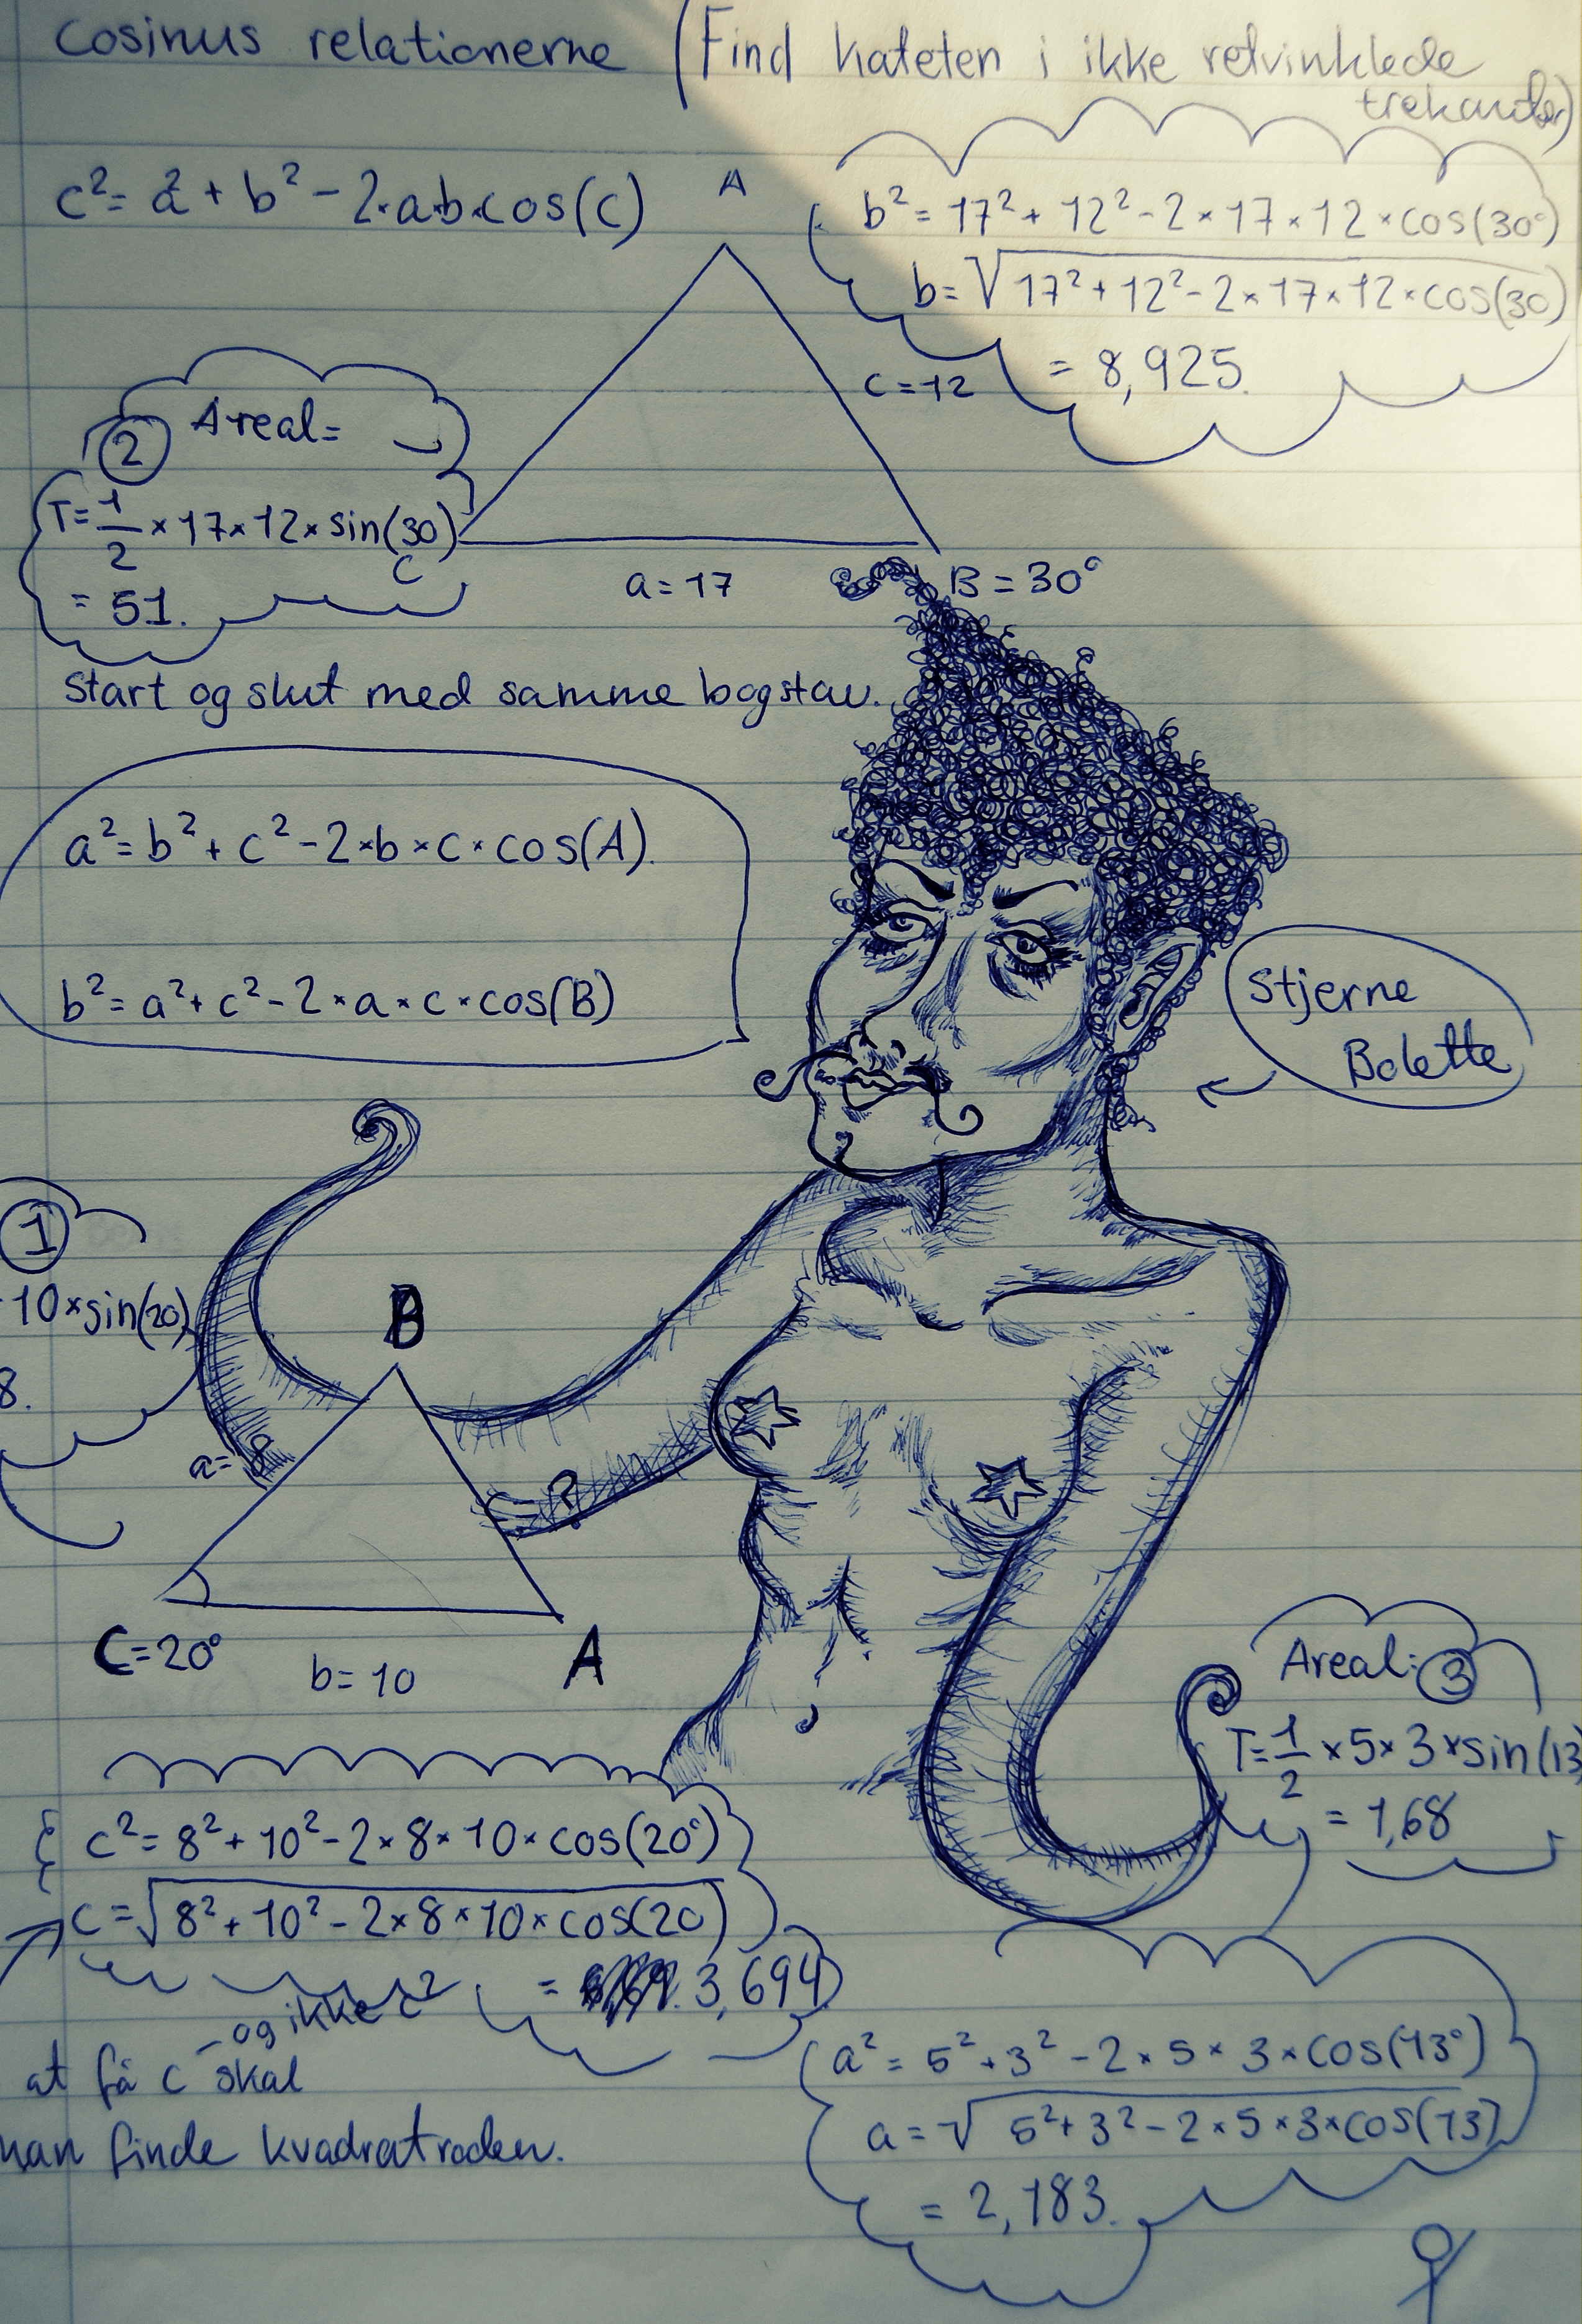 Cosinus relationerne (Find kateten i ikke retvinklede
trekanter)
c²= a² + b² - 2·a·b·cos(c)
A
b² = 17² + 12² - 2 × 17 × 12 × cos(30°)
b= √17² + 12² - 2 × 17 × 12 × cos(30)
= 8,925.
c = 12
② Areal=
T= 1/2 × 17 × 12 × sin(30)
= 51.
C
a = 17
B = 30°
Start og slut med samme bogstav.
a² = b² + c² - 2 × b × c × cos(A).
b² = a² + c² - 2 × a × c × cos(B)
Stjerne
Bolette
①
10 × sin(20)
8.
B
a = 8
c = ?
C = 20°
b = 10
A
Areal: ③
T= 1/2 × 5 × 3 × sin(13
= 1,68
c² = 8² + 10² - 2 × 8 × 10 × cos(20°)
c = √8² + 10² - 2 × 8 × 10 × cos(20)
= 3,694
- og ikke c²
at få c skal
man finde kvadratroden.
a² = 5² + 3² - 2 × 5 × 3 × cos(13°)
a = √5² + 3² - 2 × 5 × 3 × cos(13)
= 2,183.